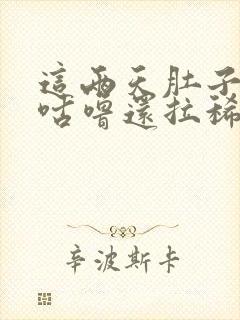 這兩天肚子
咕嚕還拉稀
辛波斯卡